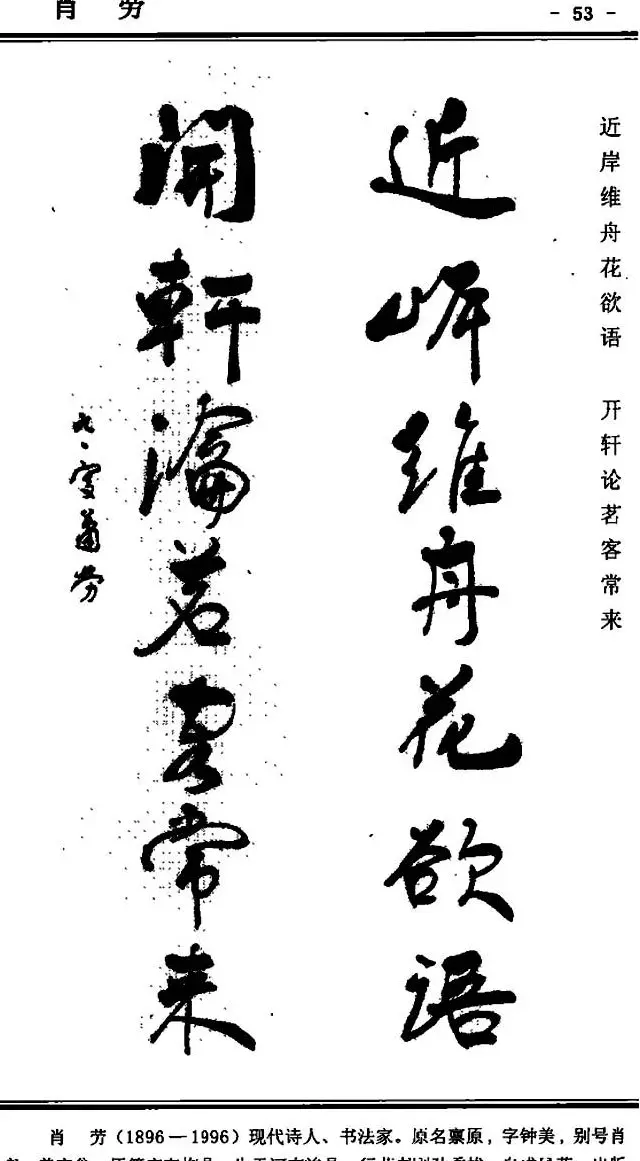 肖 劳
- 53 -
近岸维舟花欲语 开轩论茗客常来
近岸維舟花欲语
開軒瀹茗客常来
九一叟蕭劳
肖 劳（1896—1996）现代诗人、书法家。原名禀原，字钟美，别号肖